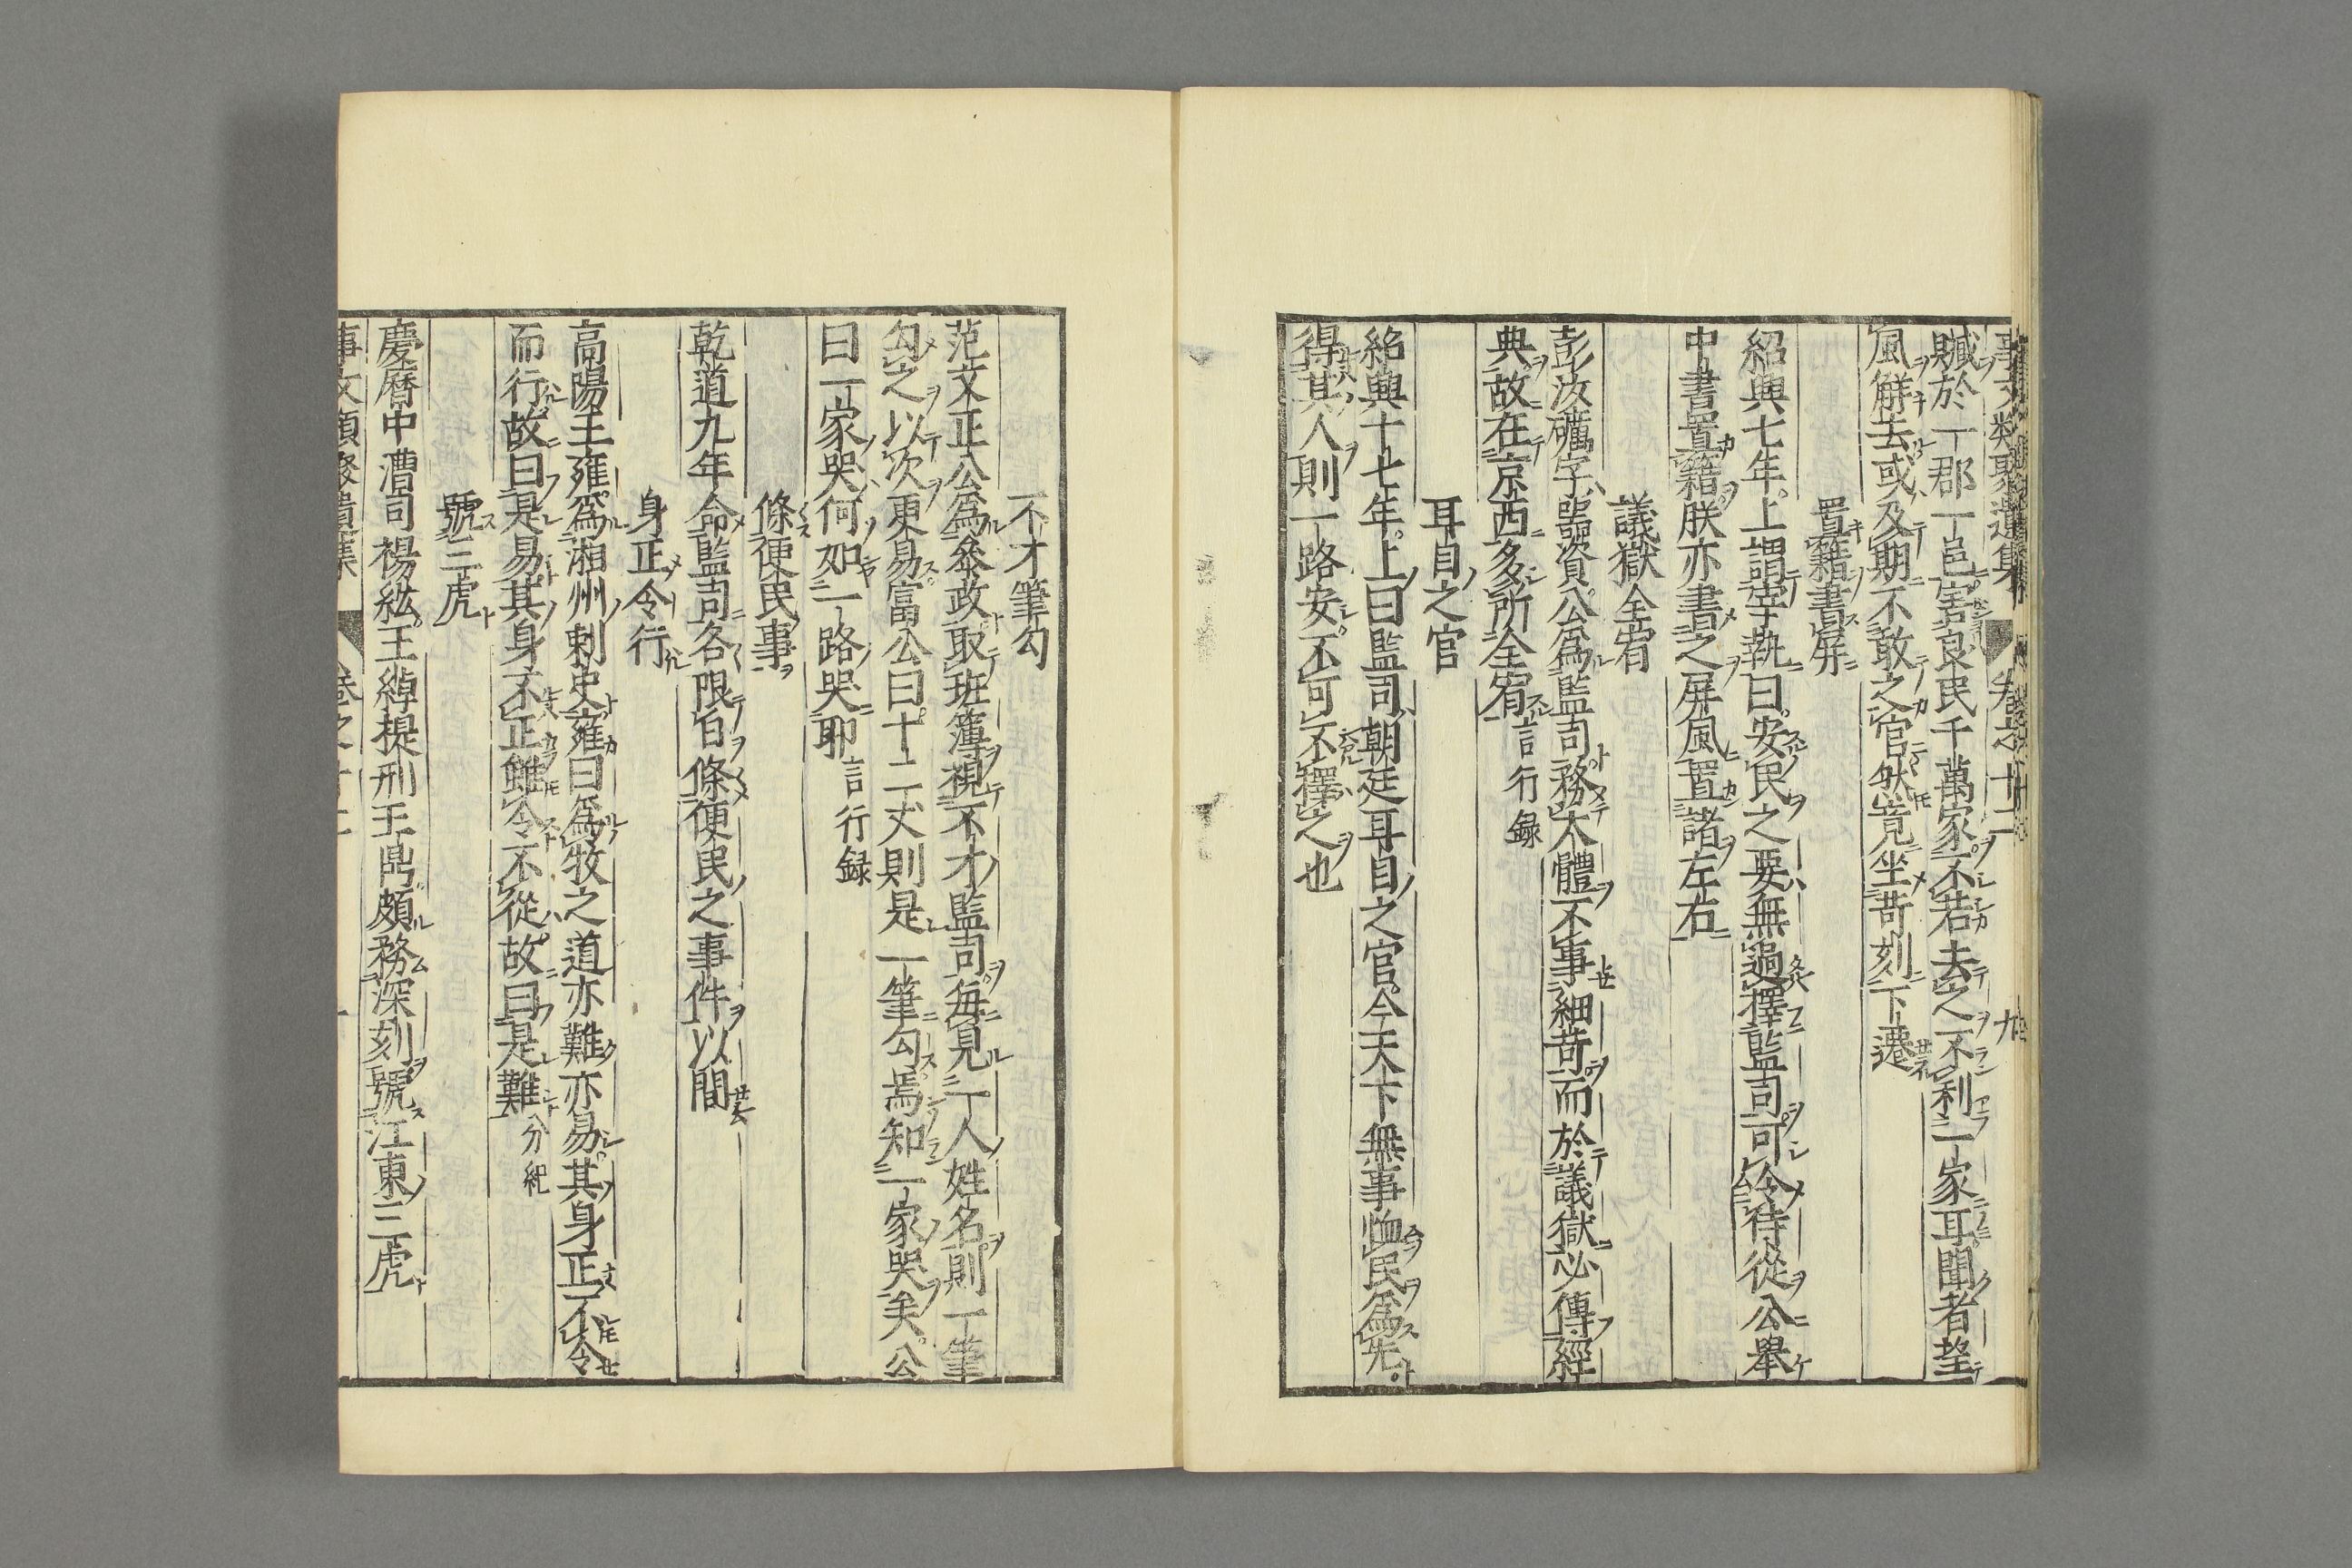 事文類聚遺集 卷之十二
贓於一郡一邑害良民千萬家不若去之不利一家耳聞者望
風觧去或及期不敢之官然竟坐苛刻下遷
置籍書屏
紹興七年上謂宰執曰安民之要無過擇監司可令待從公舉
中書置籍朕亦書之屏風置諸左右
議獄全宥
彭汝礪字噐資公為監司務大體不事細苛而於議獄必傳經
典故在京西多所全宥言行録
耳目之官
紹興十七年上曰監司朝廷耳目之官今天下無事恤民為先
得其人則一路安不可不釋之也
不才筆勾
范文正公為叅政取班簿視不才監司每見一人姓名則一筆
勾之以次更易富公曰十二丈則是一筆勾焉知一家哭矣公
曰一家哭何如一路哭耶言行録
條便民事
乾道九年命監司各限白條便民之事件以聞
身正令行
高陽王雍為湘州刺史雍曰為牧之道亦難亦易其身正不令
而行故曰是易其身不正雖令不從故曰是難分紀
號三虎
慶曆中漕司楊紘王綽提刑王鼎頗務深刻號江東三虎
事文類聚遺集 卷之十二